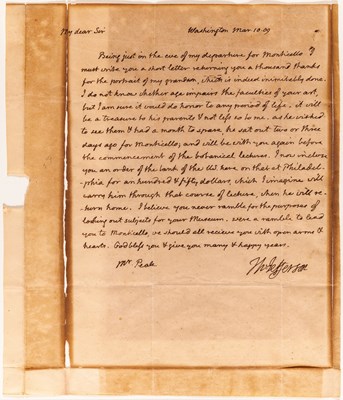 My dear Sir Washington Mar. 10. 09
Being just in the eve of my departure for Monticello I
must write you a short letter returning you a thousand thanks
for the portrait of my grandson, which is indeed inimitably done.
I do not know whether age impairs the faculties of your art,
but I am sure it would do honor to any period of life. it will
be a treasure to his parents & not less so to me. as he wished
to see them & had a month to spare, he set out two or three
days ago for Monticello, and will be with you again before
the commencement of the botanical lectures. I now inclose
you an order of the bank of the US. here on that at Philadel-
phia for an hundred & fifty dollars, which I imagine will
carry him through that course of lecture, when he will re-
turn home. I believe you never ramble for the purposes of
looking out subjects for your Museum. were a ramble to lead
you to Monticello, we should all recieve you with open arms &
hearts. God bless you & give you many & happy years.
Mr. Peale. Th: Jefferson